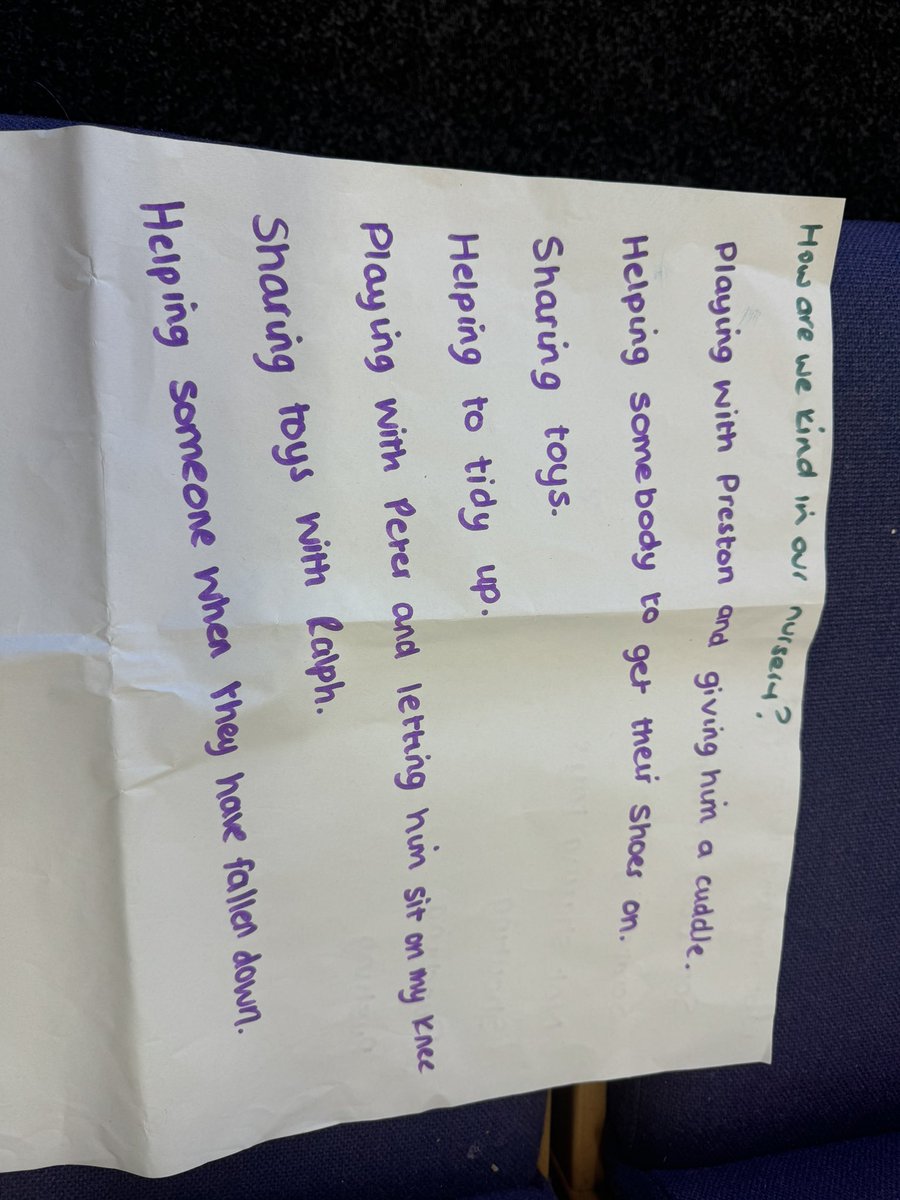 How are we kind in our nursery?
Playing with Preston and giving him a cuddle.
Helping somebody to get their shoes on.
Sharing toys.
Helping to tidy up.
Playing with Peter and letting him sit on my knee
Sharing toys with Ralph.
Helping someone when they have fallen down.